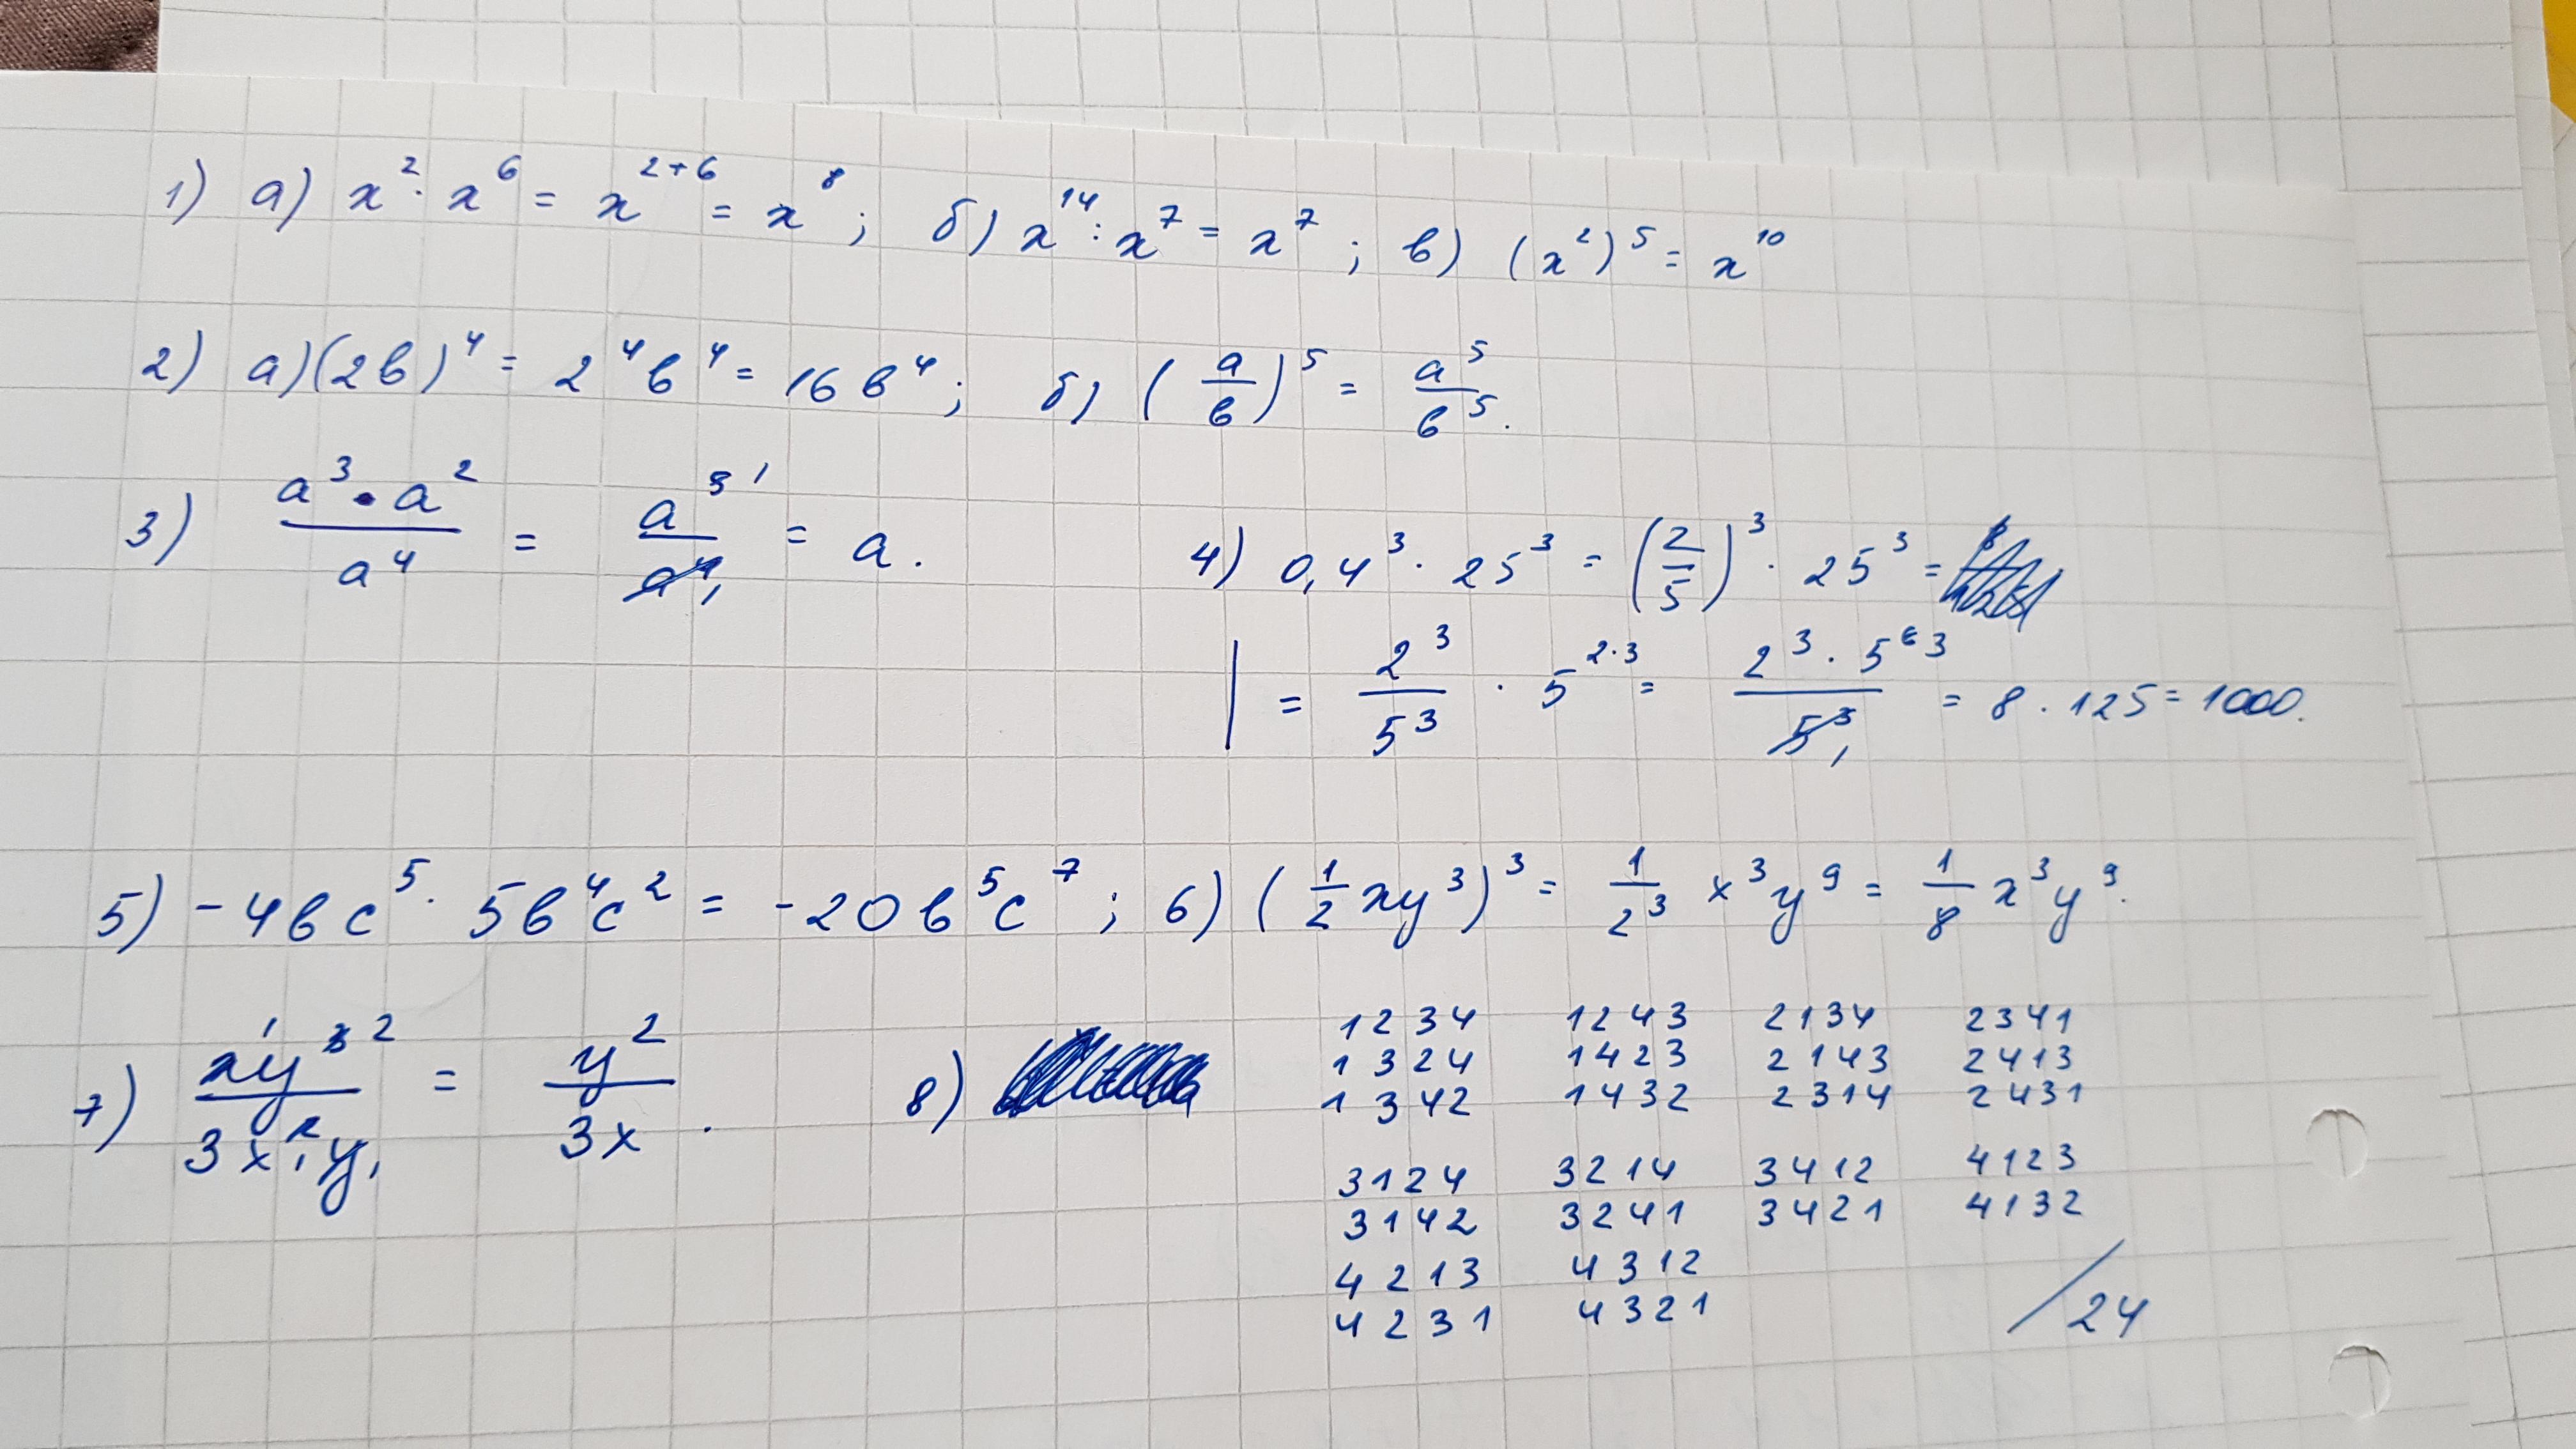 1) а) x² · x⁶ = x²⁺⁶ = x⁸ ; б) x¹⁴ : x⁷ = x⁷ ; в) (x²)⁵ = x¹⁰
2) а) (2b)⁴ = 2⁴b⁴ = 16b⁴ ; б) (a/b)⁵ = a⁵/b⁵.
3) a³ · a² / a⁴ = a⁵ ¹ / a⁴ ₁ = a.
4) 0,4³ · 25³ = (2/5)³ · 25³ =
= 2³/5³ · 5²·³ = 2³ · 5⁶ ³ / 5³ ₁ = 8 · 125 = 1000.
5) -4bc⁵ · 5b⁴c² = -20b⁵c⁷ ; 6) (1/2 xy³)³ = 1/2³ x³y⁹ = 1/8 x³y⁹.
7) ¹xy³ ² / 3x² ₁ y ₁ = y²/3x .
8) 1234 1243 2134 2341
1324 1423 2143 2413
1342 1432 2314 2431
3124 3214 3412 4123
3142 3241 3421 4132
4213 4312
4231 4321
/24